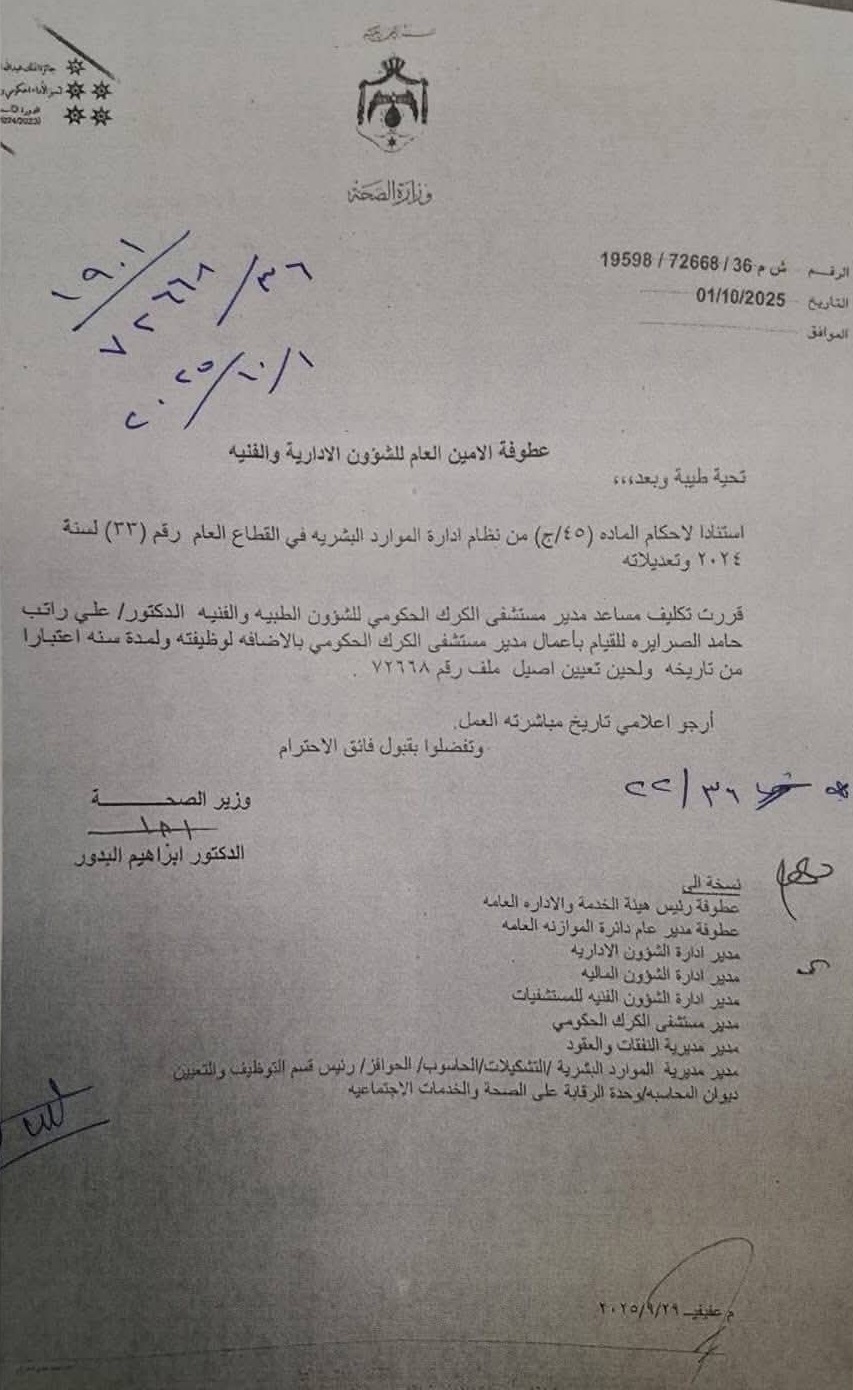 بسم الله الرحمن الرحيم
جائزة الملك عبدالله
لتميز الأداء الحكومي و
الدورة
وزارة الصحة
الرقم ش م 36 / 72668 / 19598
التاريخ 01/10/2025
الموافق
٣٦ / ٧٢٦٦٨ / ١٩٠١
٢٠٢٥/١٠/١
عطوفة الامين العام للشؤون الادارية والفنيه
تحية طيبة وبعد،،،
استنادا لاحكام الماده (٤٥/ج) من نظام ادارة الموارد البشريه في القطاع العام رقم (٣٣) لسنة
٢٠٢٤ وتعديلاته
قررت تكليف مساعد مدير مستشفى الكرك الحكومي للشؤون الطبيه والفنيه الدكتور/ علي راتب
حامد الصرايره للقيام بأعمال مدير مستشفى الكرك الحكومي بالاضافه لوظيفته ولمدة سنه اعتبارا
من تاريخه ولحين تعيين اصيل ملف رقم ٧٢٦٦٨ .
أرجو اعلامي تاريخ مباشرته العمل.
وتفضلوا بقبول فائق الاحترام
٣٦ / ٢٢
وزير الصحــــــة
الدكتور ابراهيم البدور
نسخة الى
عطوفة رئيس هيئة الخدمة والاداره العامه
عطوفة مدير عام دائرة الموازنه العامه
مدير ادارة الشؤون الاداريه
مدير ادارة الشؤون الماليه
مدير ادارة الشؤون الفنيه للمستشفيات
مدير مستشفى الكرك الحكومي
مدير مديرية النفقات والعقود
مدير مديرية الموارد البشرية /التشكيلات/الحاسوب/ الحوافز/ رئيس قسم التوظيف والتعيين
ديوان المحاسبه/وحدة الرقابة على الصحة والخدمات الاجتماعيه
٢٠٢٥/٩/٢٩